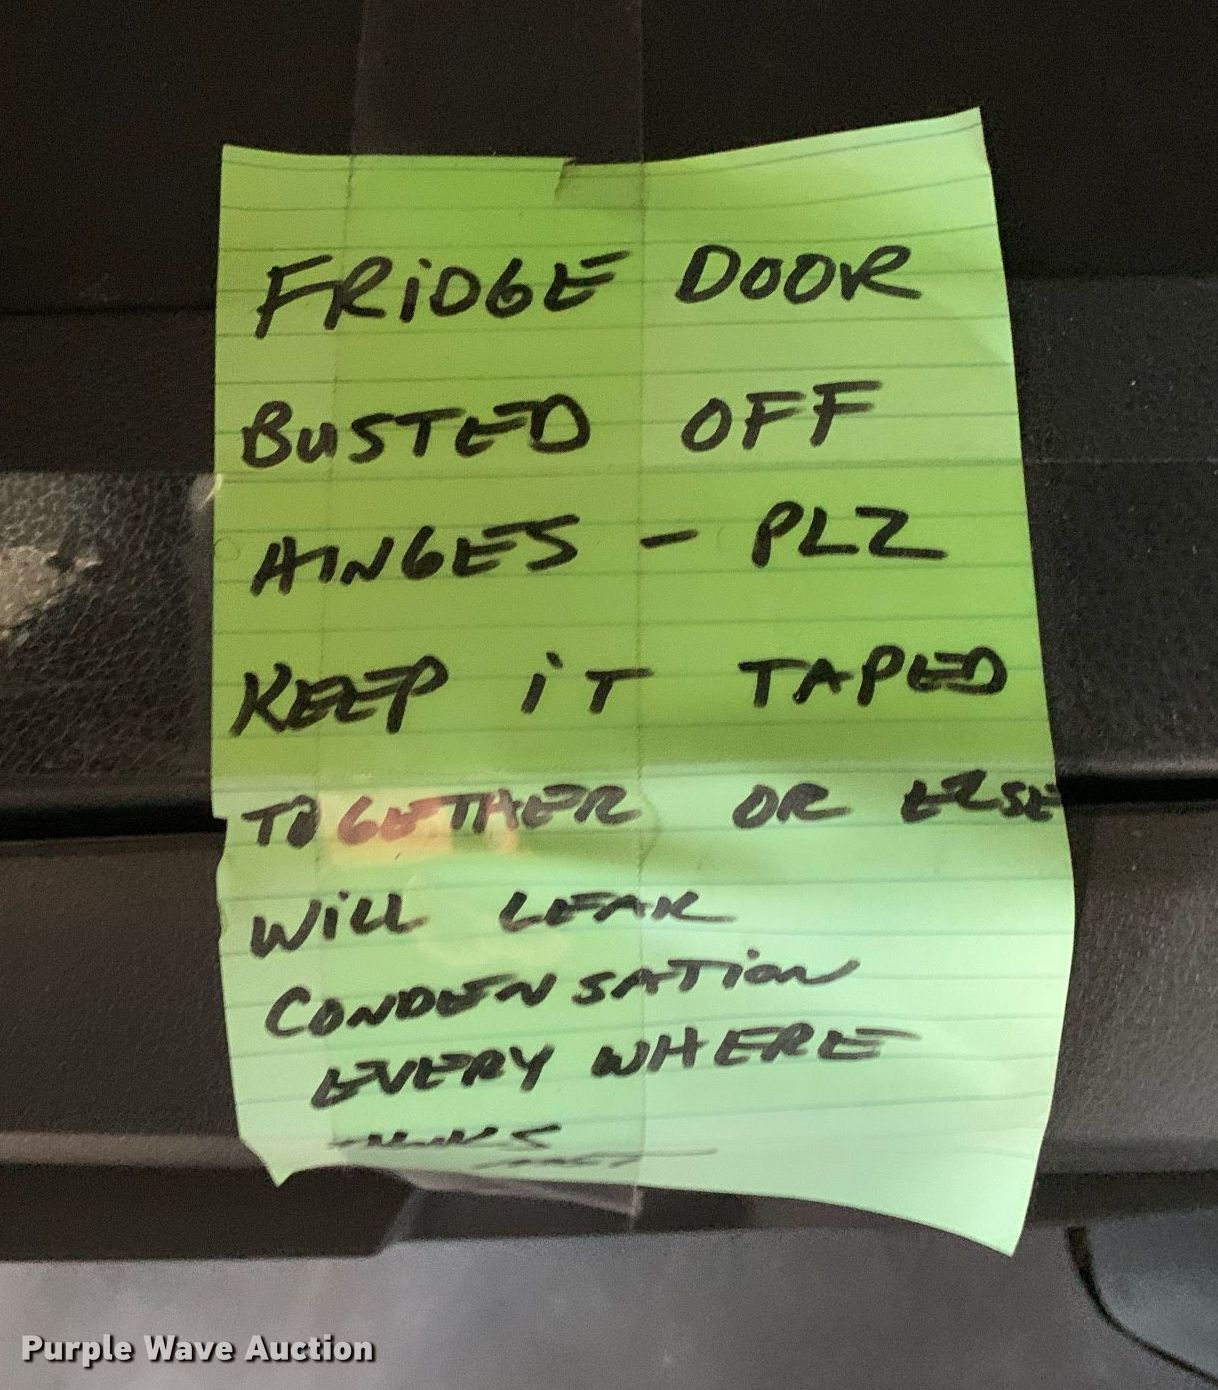 FRiDGE DOOR
BuSTED OFF
HINGES - PLZ
KEEP iT TAPED
TOGETHER OR ELSE
WiLL LEAK
CONDENSATiON
EVERY WHERE
THANKS
Purple Wave Auction